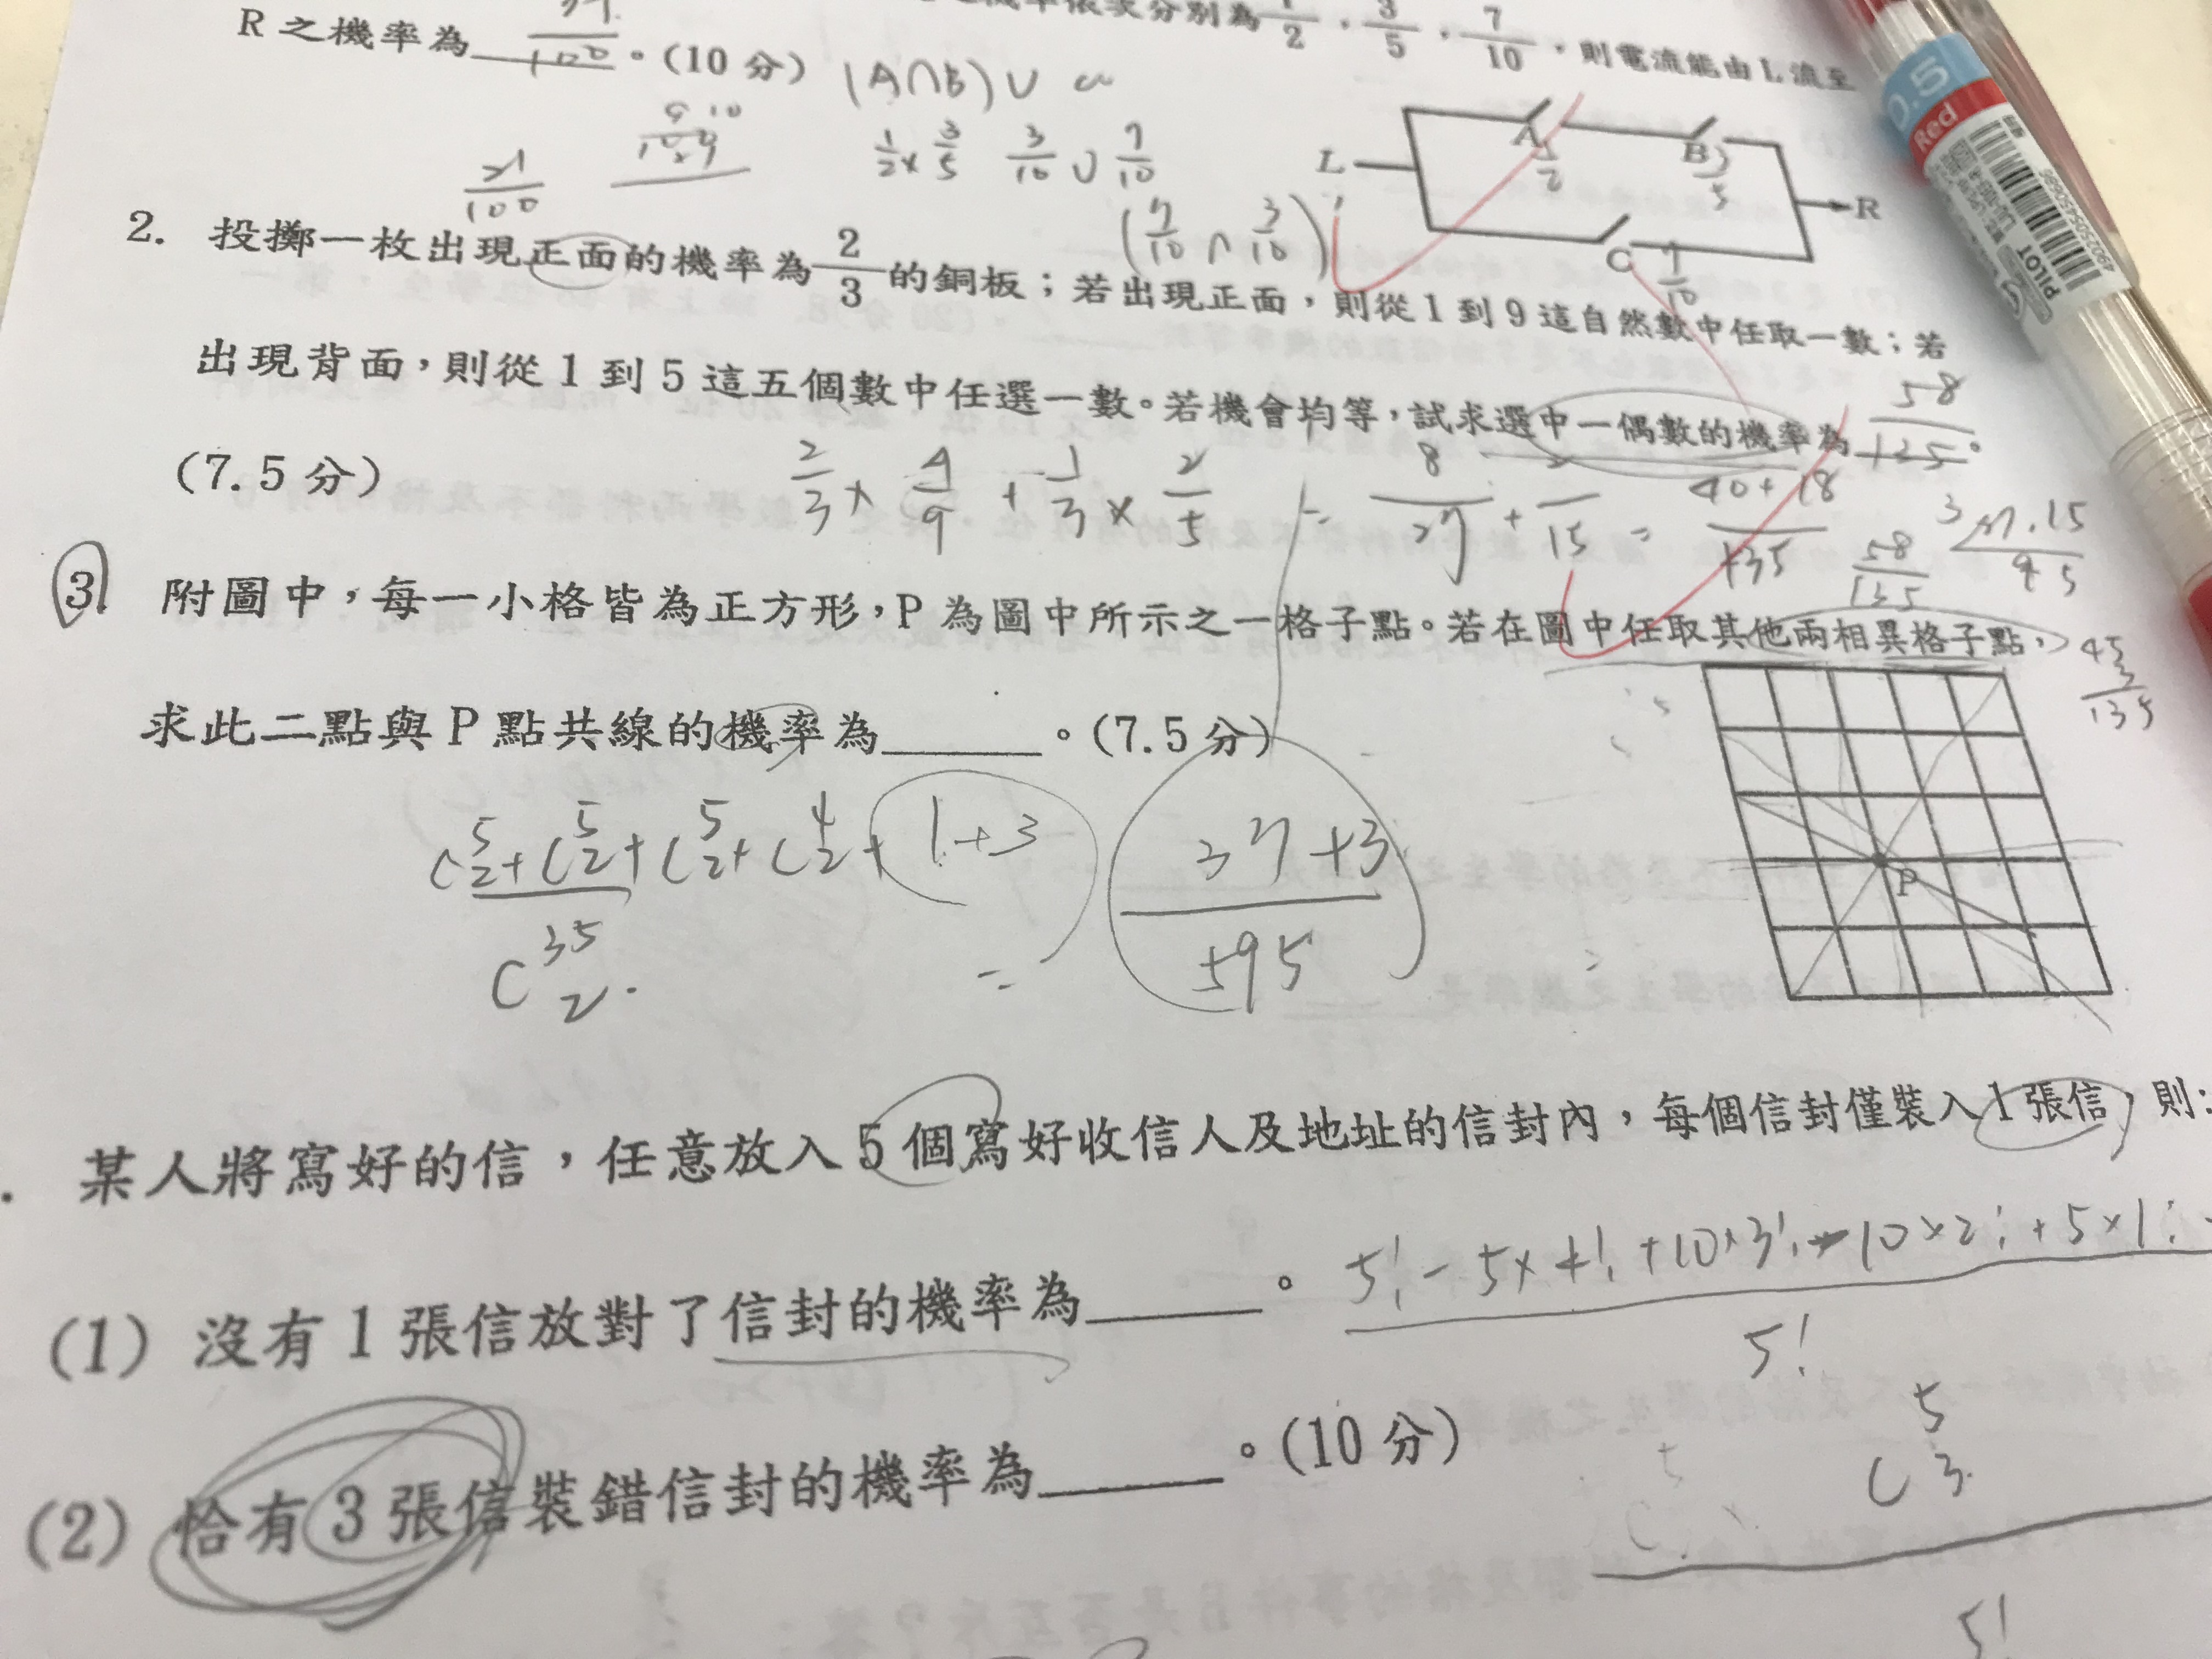 分別為 1/2，3/5，7/10，則電流能由L流至
R之機率為 /100。(10分)
(A∩B)∪
1/2 × 3/5 3/10 ∪ 7/10
21/100
(7/10 ∩ 3/10)
L A 1/2 B 3/5 R
C 7/10
2. 投擲一枚出現正面的機率為2/3的銅板；若出現正面，則從1到9這自然數中任取一數；若
出現背面，則從1到5這五個數中任選一數。若機會均等，試求選中一偶數的機率為 58/135。
(7.5分)
2/3 × 4/9 + 1/3 × 2/5 = 8/27 + 2/15 = 40+18/135 58/135
3 27.15 / 9 5
45 3 / 135
3. 附圖中，每一小格皆為正方形，P為圖中所示之一格子點。若在圖中任取其他兩相異格子點，
求此二點與P點共線的機率為______。(7.5分)
P
C5 2 + C5 2 + C5 2 + C4 2 + 1+3
C35 2 . = 37+3 / 595
. 某人將寫好的信，任意放入5個寫好收信人及地址的信封內，每個信封僅裝入1張信，則:
(1) 沒有1張信放對了信封的機率為______。
5! - 5×4! + 10×3! - 10×2! + 5×1! -
5!
(2) 恰有3張信裝錯信封的機率為______。(10分)
C5 3.
5!
0.5
Red
PILOT